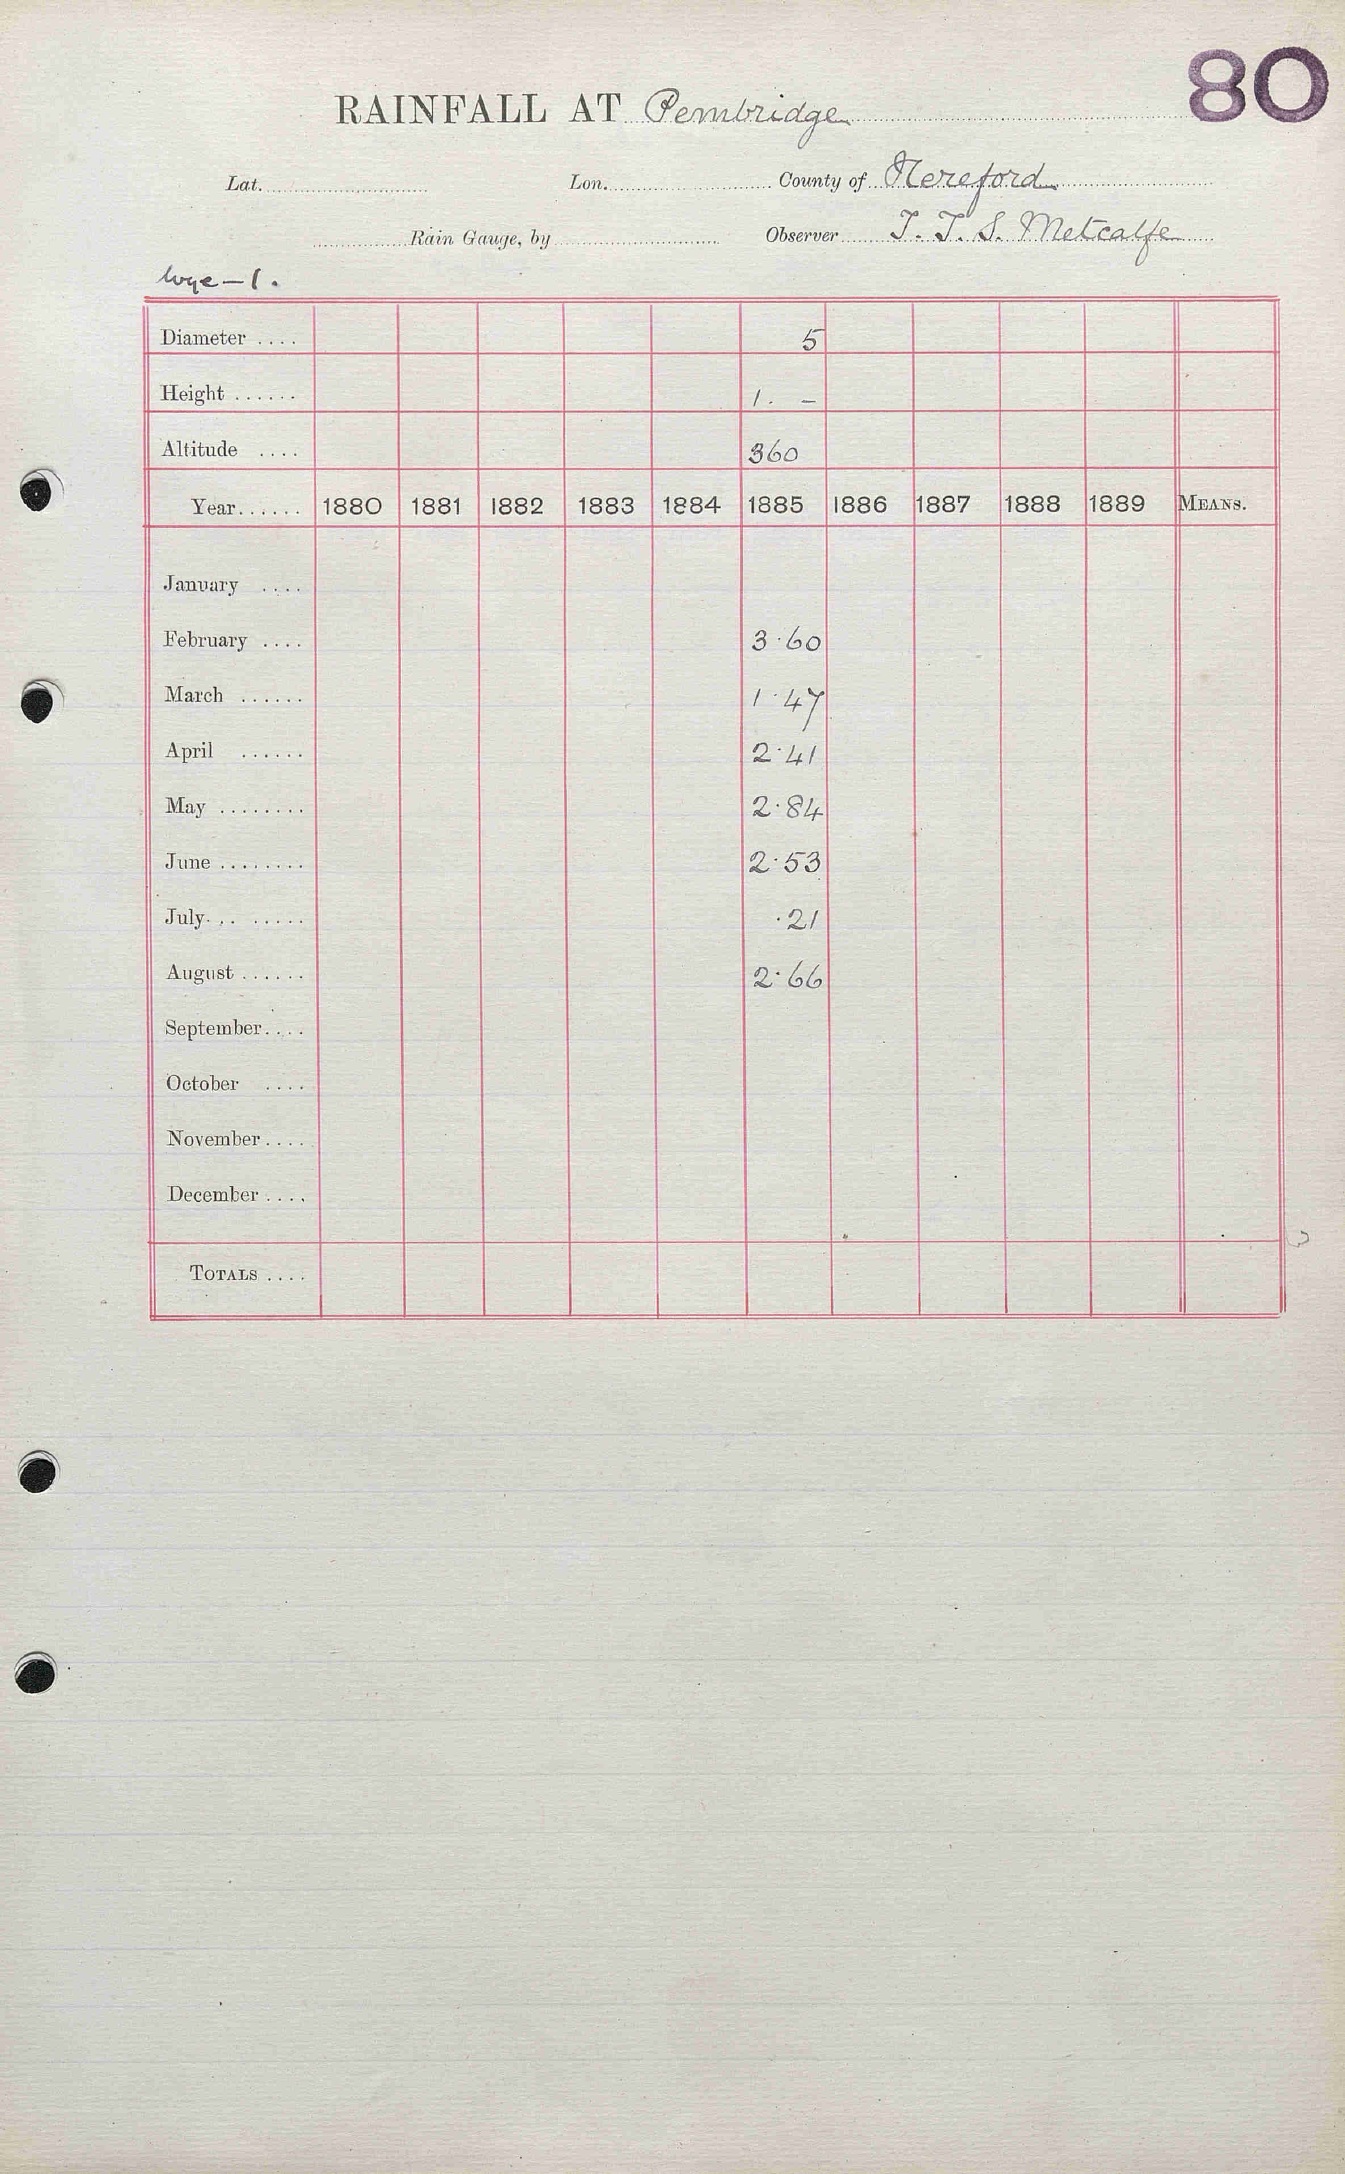 80
RAINFALL AT Pembridge
Lat. Lon. County of Hereford
Rain Gauge, by Observer T. T. S. Metcalfe
Wye – 1.
Diameter .... 5
Height ...... 1. –
Altitude .... 360
Year...... 1880 1881 1882 1883 1884 1885 1886 1887 1888 1889 MEANS.
January ....
February .... 3·60
March ...... 1·47
April ...... 2·41
May ........ 2·84
June ........ 2·53
July... ..... ·21
August ...... 2·66
September....
October ....
November....
December....
TOTALS ....